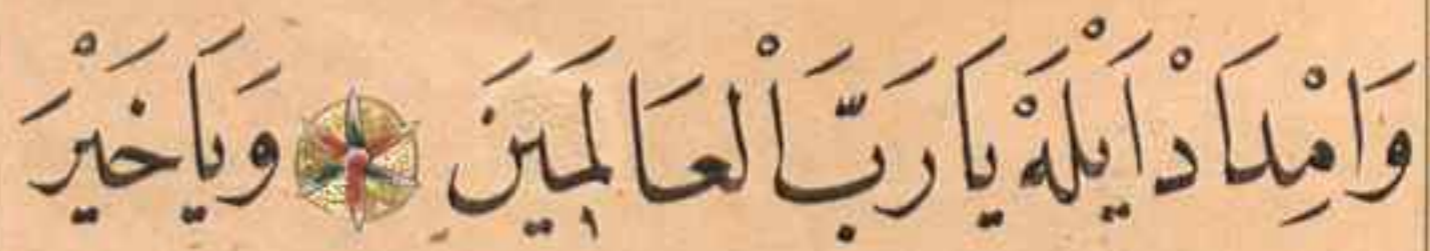 وَاِمْدَادْ اَيْلَهْ يَا رَبَّ الْعَالَمِينَ وَيَا خَيْرَ